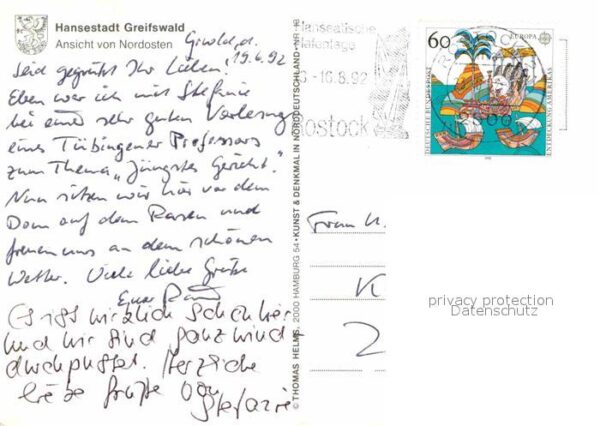 Hansestadt Greifswald
Ansicht von Nordosten
Gwald, d.
19.6.92
Seid gegrüßt Ihr Lieben!
Eben war ich mit Stefanie
bei einer sehr guten Vorlesung
eines Tübingener Professors
zum Thema "Jüngstes Gericht".
Nun sitzen wir hier vor dem
Dom auf dem Rasen und
freuen uns an dem schönen
Wetter. Viele liebe Grüße
Euer
Es ist wirklich schön hier
und wir sind ganz wind-
durchpustet. Herzliche
liebe Grüße von
Stefanie
© THOMAS HELMS, 2000 HAMBURG 54 • KUNST & DENKMAL IN NORDDEUTSCHLAND • NR.
Hanseatische
Hafentage
- 16.8.92
ostock
60
EUROPA
DEUTSCHE BUNDESPOST
ENTDECKUNG AMERIKAS
Frau
K
privacy protection
Datenschutz